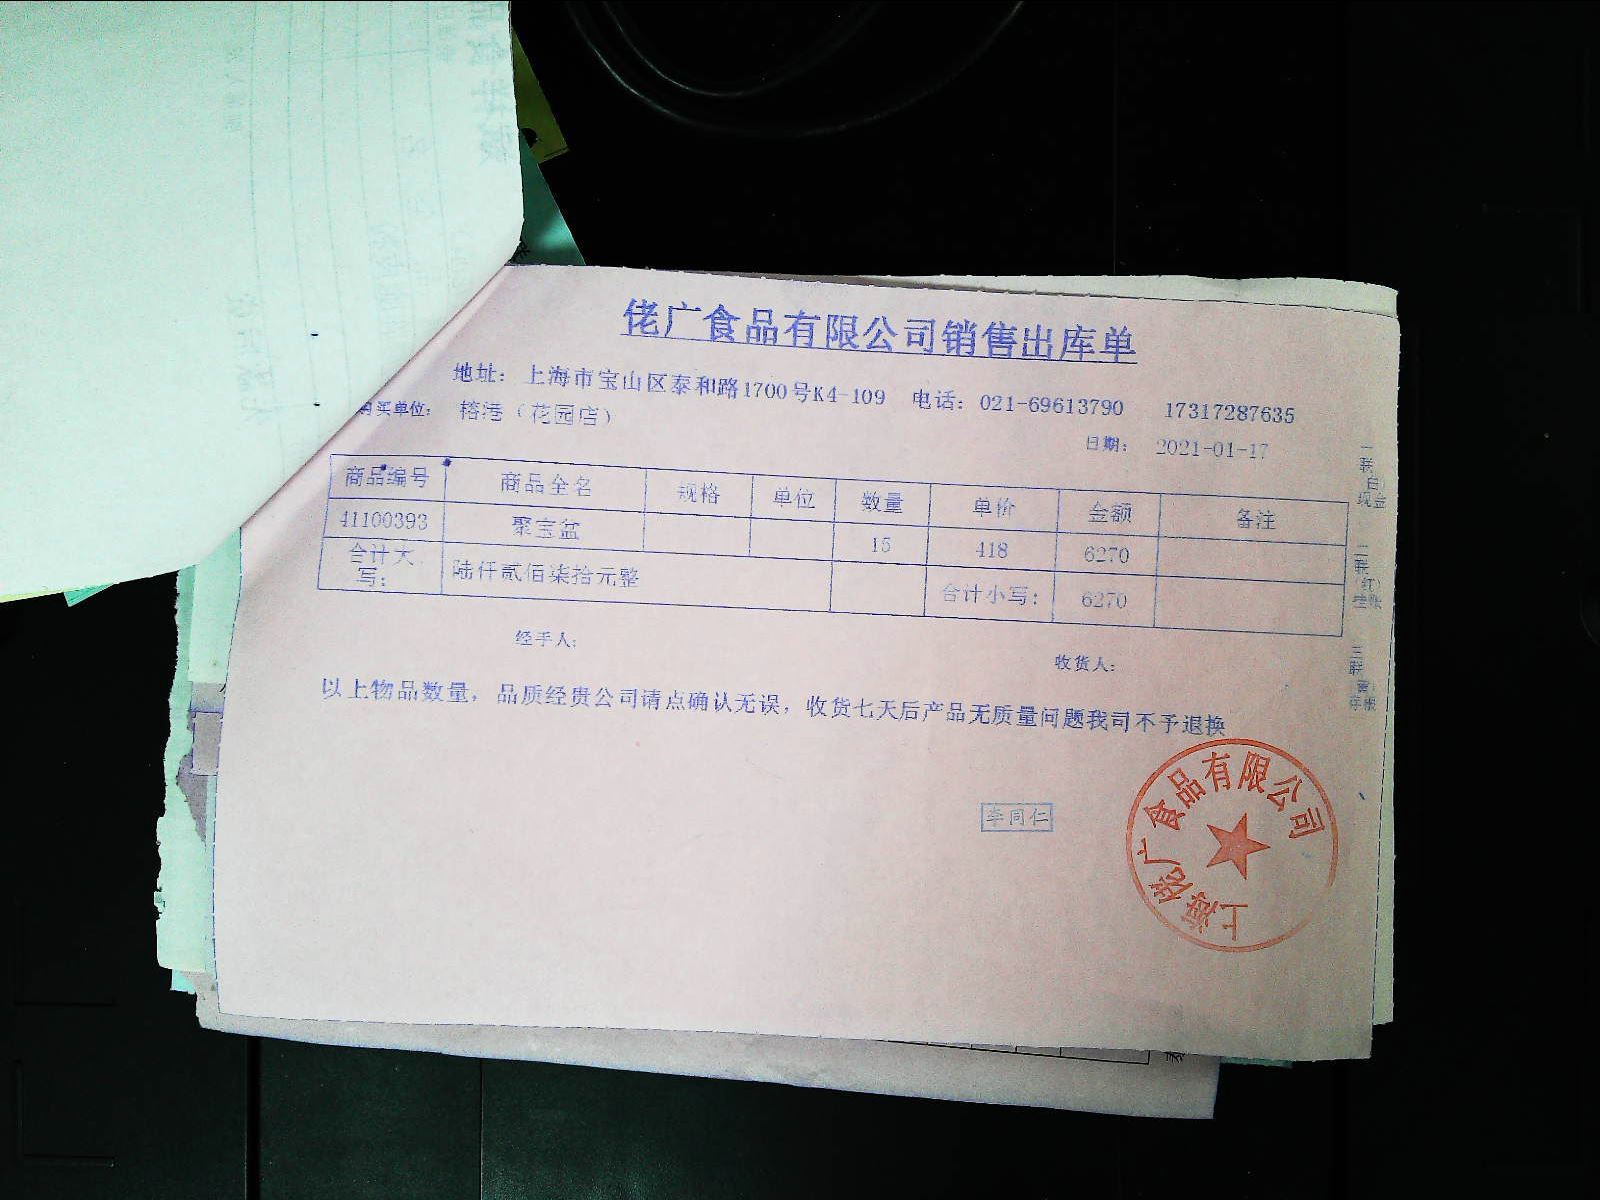 佬广食品有限公司销售出库单
地址：上海市宝山区泰和路1700号K4-109 电话：021-69613790 17317287635
购买单位：榕港（花园店）
日期：2021-01-17
商品编号 商品全名 规格 单位 数量 单价 金额 备注
41100393 聚宝盆 15 418 6270
合计大写： 陆仟贰佰柒拾元整 合计小写： 6270
经手人： 收货人：
以上物品数量，品质经贵公司请点确认无误，收货七天后产品无质量问题我司不予退换
李同仁
上海佬广食品有限公司
一联（白）现金
二联（红）挂账
三联